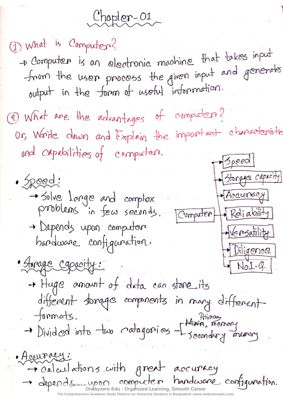 Chapter-01
① What is Computer?
→ Computer is an electronic machine that takes input
from the user process the given input and generates
output in the form of useful information.
② What are the advantages of computer?
Or, Write down and Explain the important characteristics
and capabilities of computer.
Speed
Storage capacity
Accuracy
Computer
Reliability
Versatility
Diligence
No I.Q.
• Speed:
→ Solve large and complex
problems in few seconds.
→ Depends upon computer
hardware configuration.
• Storage capacity:
→ Huge amount of data can store its
different storage components in many different
formats.
→ Divided into two catagories
Primary
Main memory
Secondary memory
• Accuracy:
→ calculations with great accuracy
→ depends upon computer hardware configuration.
Onebyzero Edu - Organized Learning, Smooth Career
The Comprehensive Academic Study Platform for University Students in Bangladesh (www.onebyzeroedu.com)